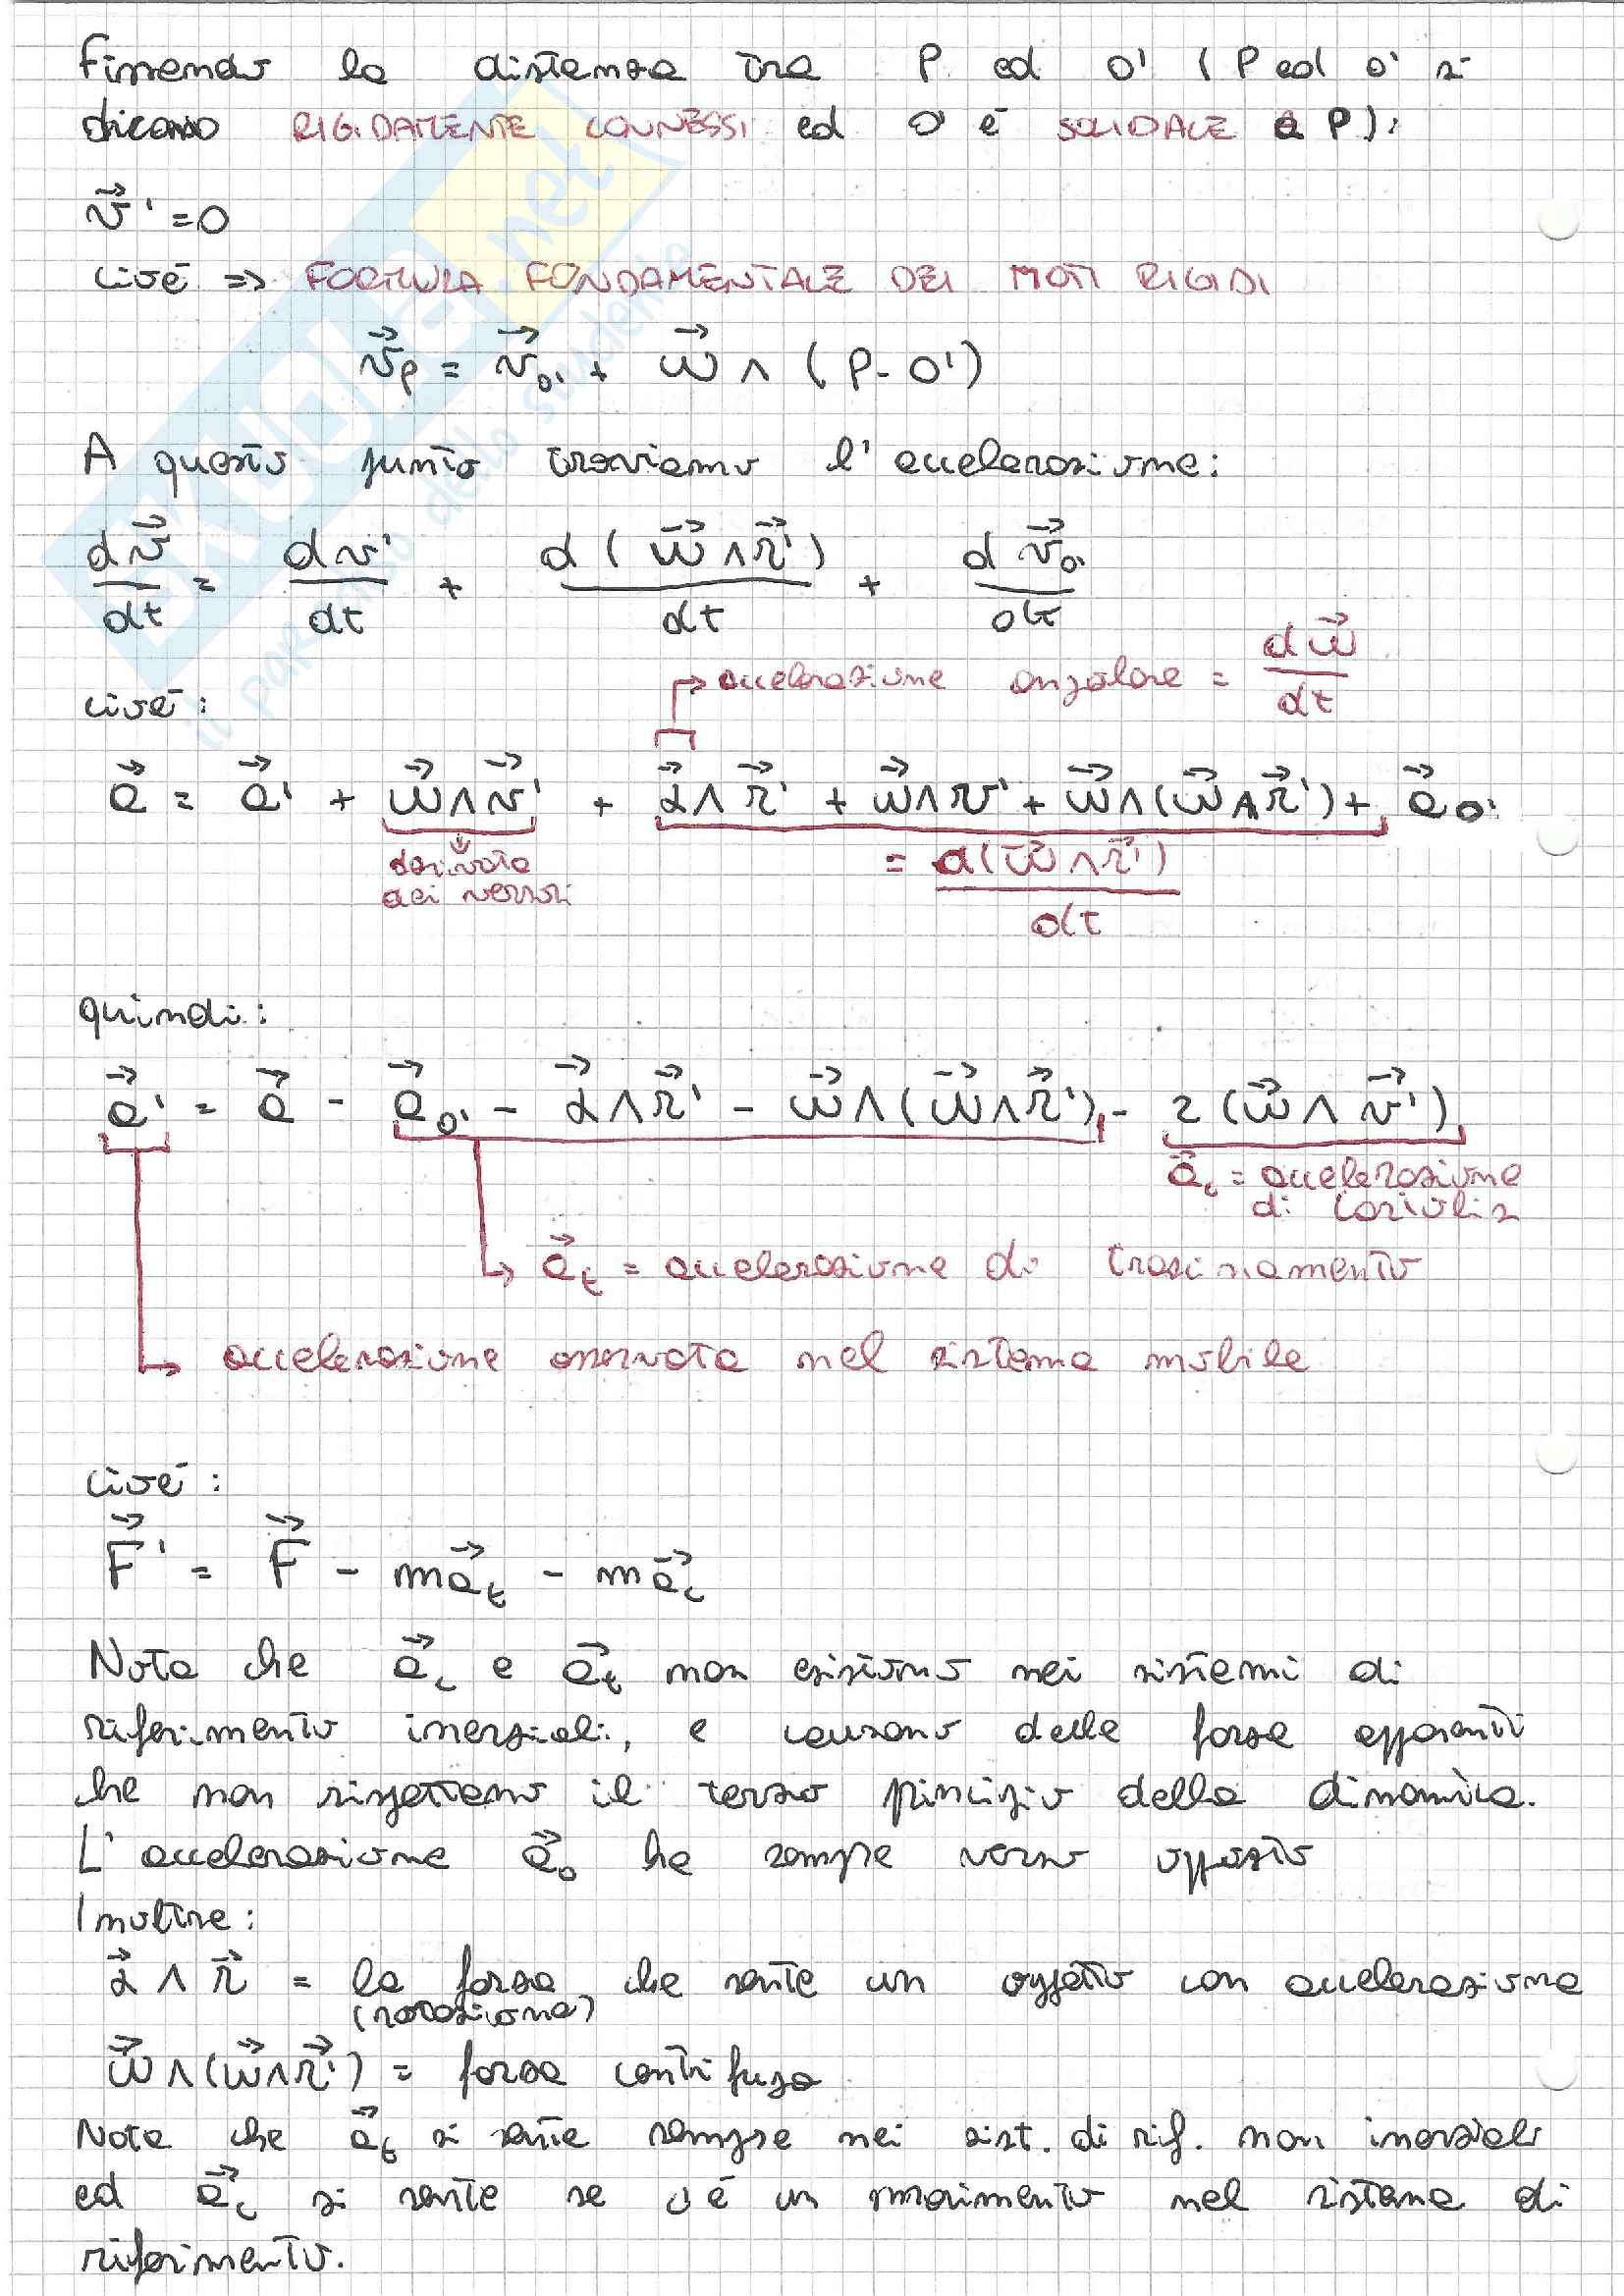 Fissando la distanza tra P ed O' (P ed O' si
dicono RIGIDAMENTE CONNESSI ed O' è SOLIDALE a P):
v⃗' = 0
cioè => FORMULA FONDAMENTALE DEI MOTI RIGIDI
v⃗_P = v⃗_O' + ω⃗ ∧ (P - O')
A questo punto troviamo l'accelerazione:
dv⃗/dt = dv'/dt + d(ω⃗ ∧ r⃗')/dt + dv⃗_O'/dt
↳ accelerazione angolare = dω⃗/dt
cioè:
a⃗ = a⃗' + ω⃗ ∧ v⃗' + α⃗ ∧ r⃗' + ω⃗ ∧ v' + ω⃗ ∧ (ω⃗ ∧ r⃗') + a⃗_O'
derivata
dei versori
= d(ω⃗ ∧ r⃗')/dt
quindi:
a⃗' = a⃗ - a⃗_O' - α⃗ ∧ r⃗' - ω⃗ ∧ (ω⃗ ∧ r⃗') - 2(ω⃗ ∧ v⃗')
a⃗_c = accelerazione
di Coriolis
↳ a⃗_t = accelerazione di trascinamento
↳ accelerazione osservata nel sistema mobile
cioè:
F⃗' = F⃗ - ma⃗_t - ma⃗_c
Nota che a⃗_c e a⃗_t non esistono nei sistemi di
riferimento inerziali, e causano delle forze apparenti
che non rispettano il terzo principio della dinamica.
L'accelerazione a⃗_o ha sempre verso opposto
Inoltre:
α⃗ ∧ r⃗ = la forza che sente un oggetto con accelerazione
(rotazione)
ω⃗ ∧ (ω⃗ ∧ r⃗') = forza centrifuga
Nota che a⃗_t si sente sempre nei sist. di rif. non inerziali
ed a⃗_c si sente se c'è un movimento nel sistema di
riferimento.